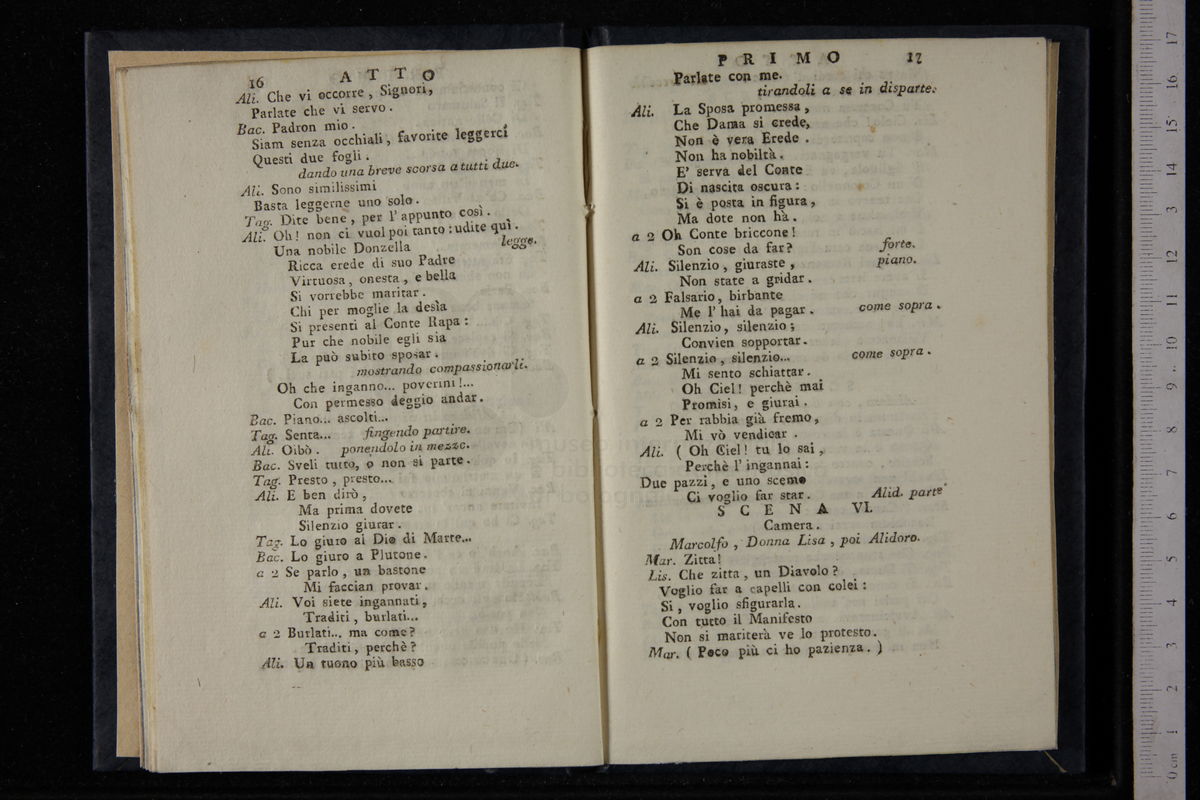 16 ATTO
Ali. Che vi occorre, Signori,
Parlate che vi servo.
Bac. Padron mio.
Siam senza occhiali, favorite leggerci
Questi due fogli.
dando una breve scorsa a tutti due.
Ali. Sono similissimi
Basta leggerne uno solo.
Tag. Dite bene, per l'appunto così.
Ali. Oh! non ci vuol poi tanto: udite quì.
Una nobile Donzella legge.
Ricca erede di suo Padre
Virtuosa, onesta, e bella
Si vorrebbe maritar.
Chi per moglie la desìa
Si presenti al Conte Rapa:
Pur che nobile egli sia
La può subito sposar.
mostrando compassionarli.
Oh che inganno... poverini!...
Con permesso deggio andar.
Bac. Piano... ascolti...
Tag. Senta... fingendo partire.
Ali. Oibò. ponendolo in mezzo.
Bac. Sveli tutto, o non si parte.
Tag. Presto, presto...
Ali. E ben dirò,
Ma prima dovete
Silenzio giurar.
Tag. Lo giuro al Dio di Marte...
Bac. Lo giuro a Plutone.
a 2 Se parlo, un bastone
Mi faccian provar.
Ali. Voi siete ingannati,
Traditi, burlati...
a 2 Burlati... ma come?
Traditi, perchè?
Ali. Un tuono più basso
PRIMO 17
Parlate con me.
tirandoli a se in disparte.
Ali. La Sposa promessa,
Che Dama si crede,
Non è vera Erede.
Non ha nobiltà.
E' serva del Conte
Di nascita oscura:
Si è posta in figura,
Ma dote non hà.
a 2 Oh Conte briccone!
Son cose da far? forte.
Ali. Silenzio, giuraste, piano.
Non state a gridar.
a 2 Falsario, birbante
Me l'hai da pagar. come sopra.
Ali. Silenzio, silenzio;
Convien sopportar.
a 2 Silenzio, silenzio... come sopra.
Mi sento schiattar.
Oh Ciel! perchè mai
Promisi, e giurai.
a 2 Per rabbia già fremo,
Mi vò vendicar.
Ali. (Oh Ciel! tu lo sai,
Perchè l'ingannai:
Due pazzi, e uno scemo
Ci voglio far star. Alid. parte
SCENA VI.
Camera.
Marcolfo, Donna Lisa, poi Alidoro.
Mar. Zitta!
Lis. Che zitta, un Diavolo?
Voglio far a capelli con colei:
Si, voglio sfigurarla.
Con tutto il Manifesto
Non si mariterà ve lo protesto.
Mar. (Poco più ci ho pazienza.)